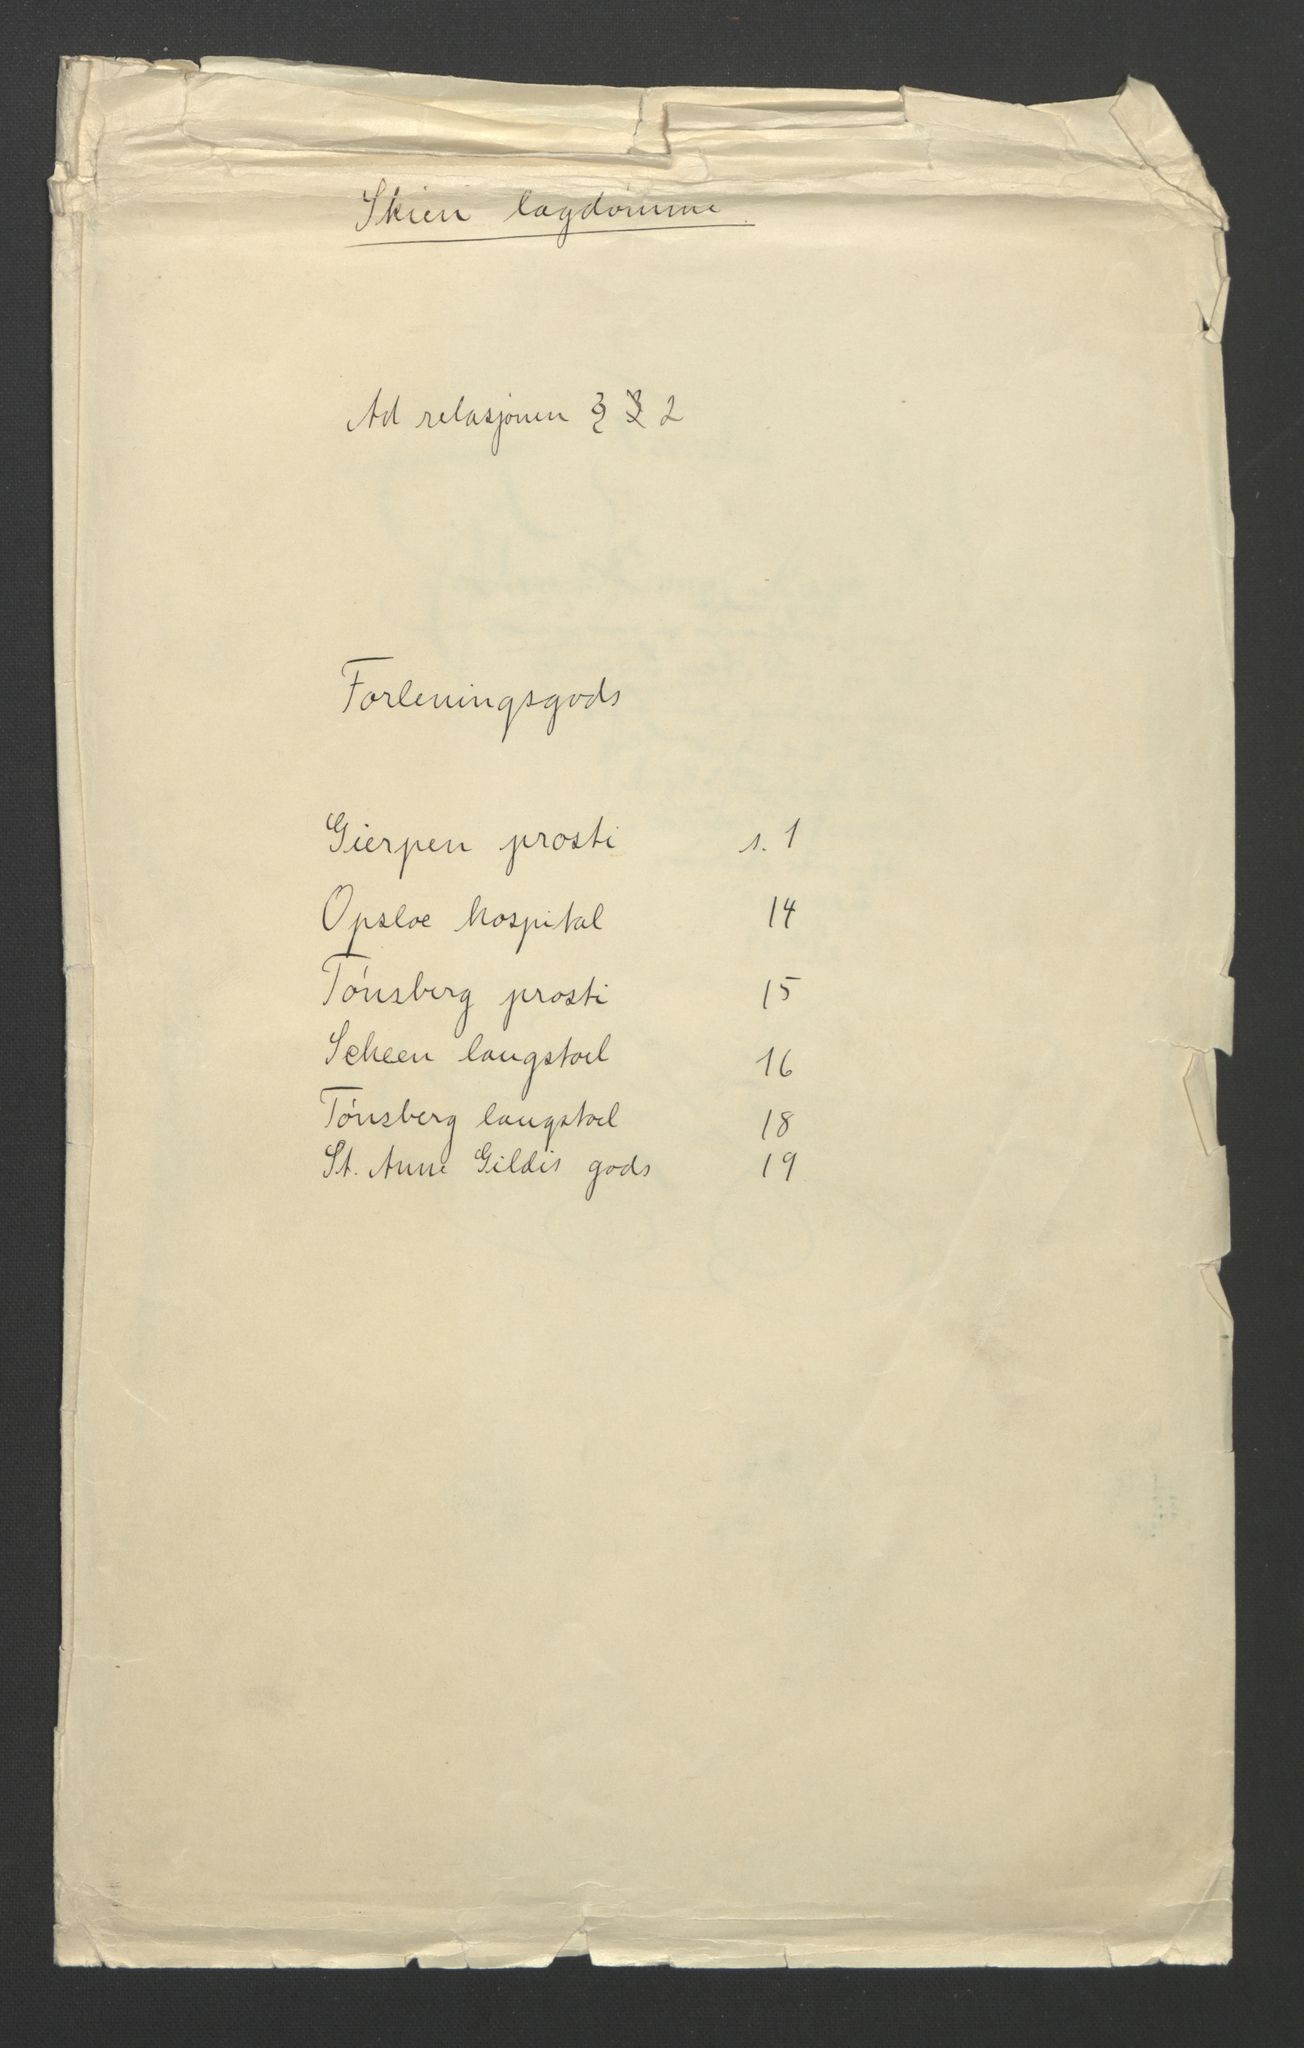 Skien lagdømme
Ad relasjonen § 2
Forleningsgods
Gierpen prosti s. 1
Opsloe hospital 14
Tønsberg prosti 15
Scheen laugstoel 16
Tønsberg laugstoel 18
St. Anne Gildis gods 19